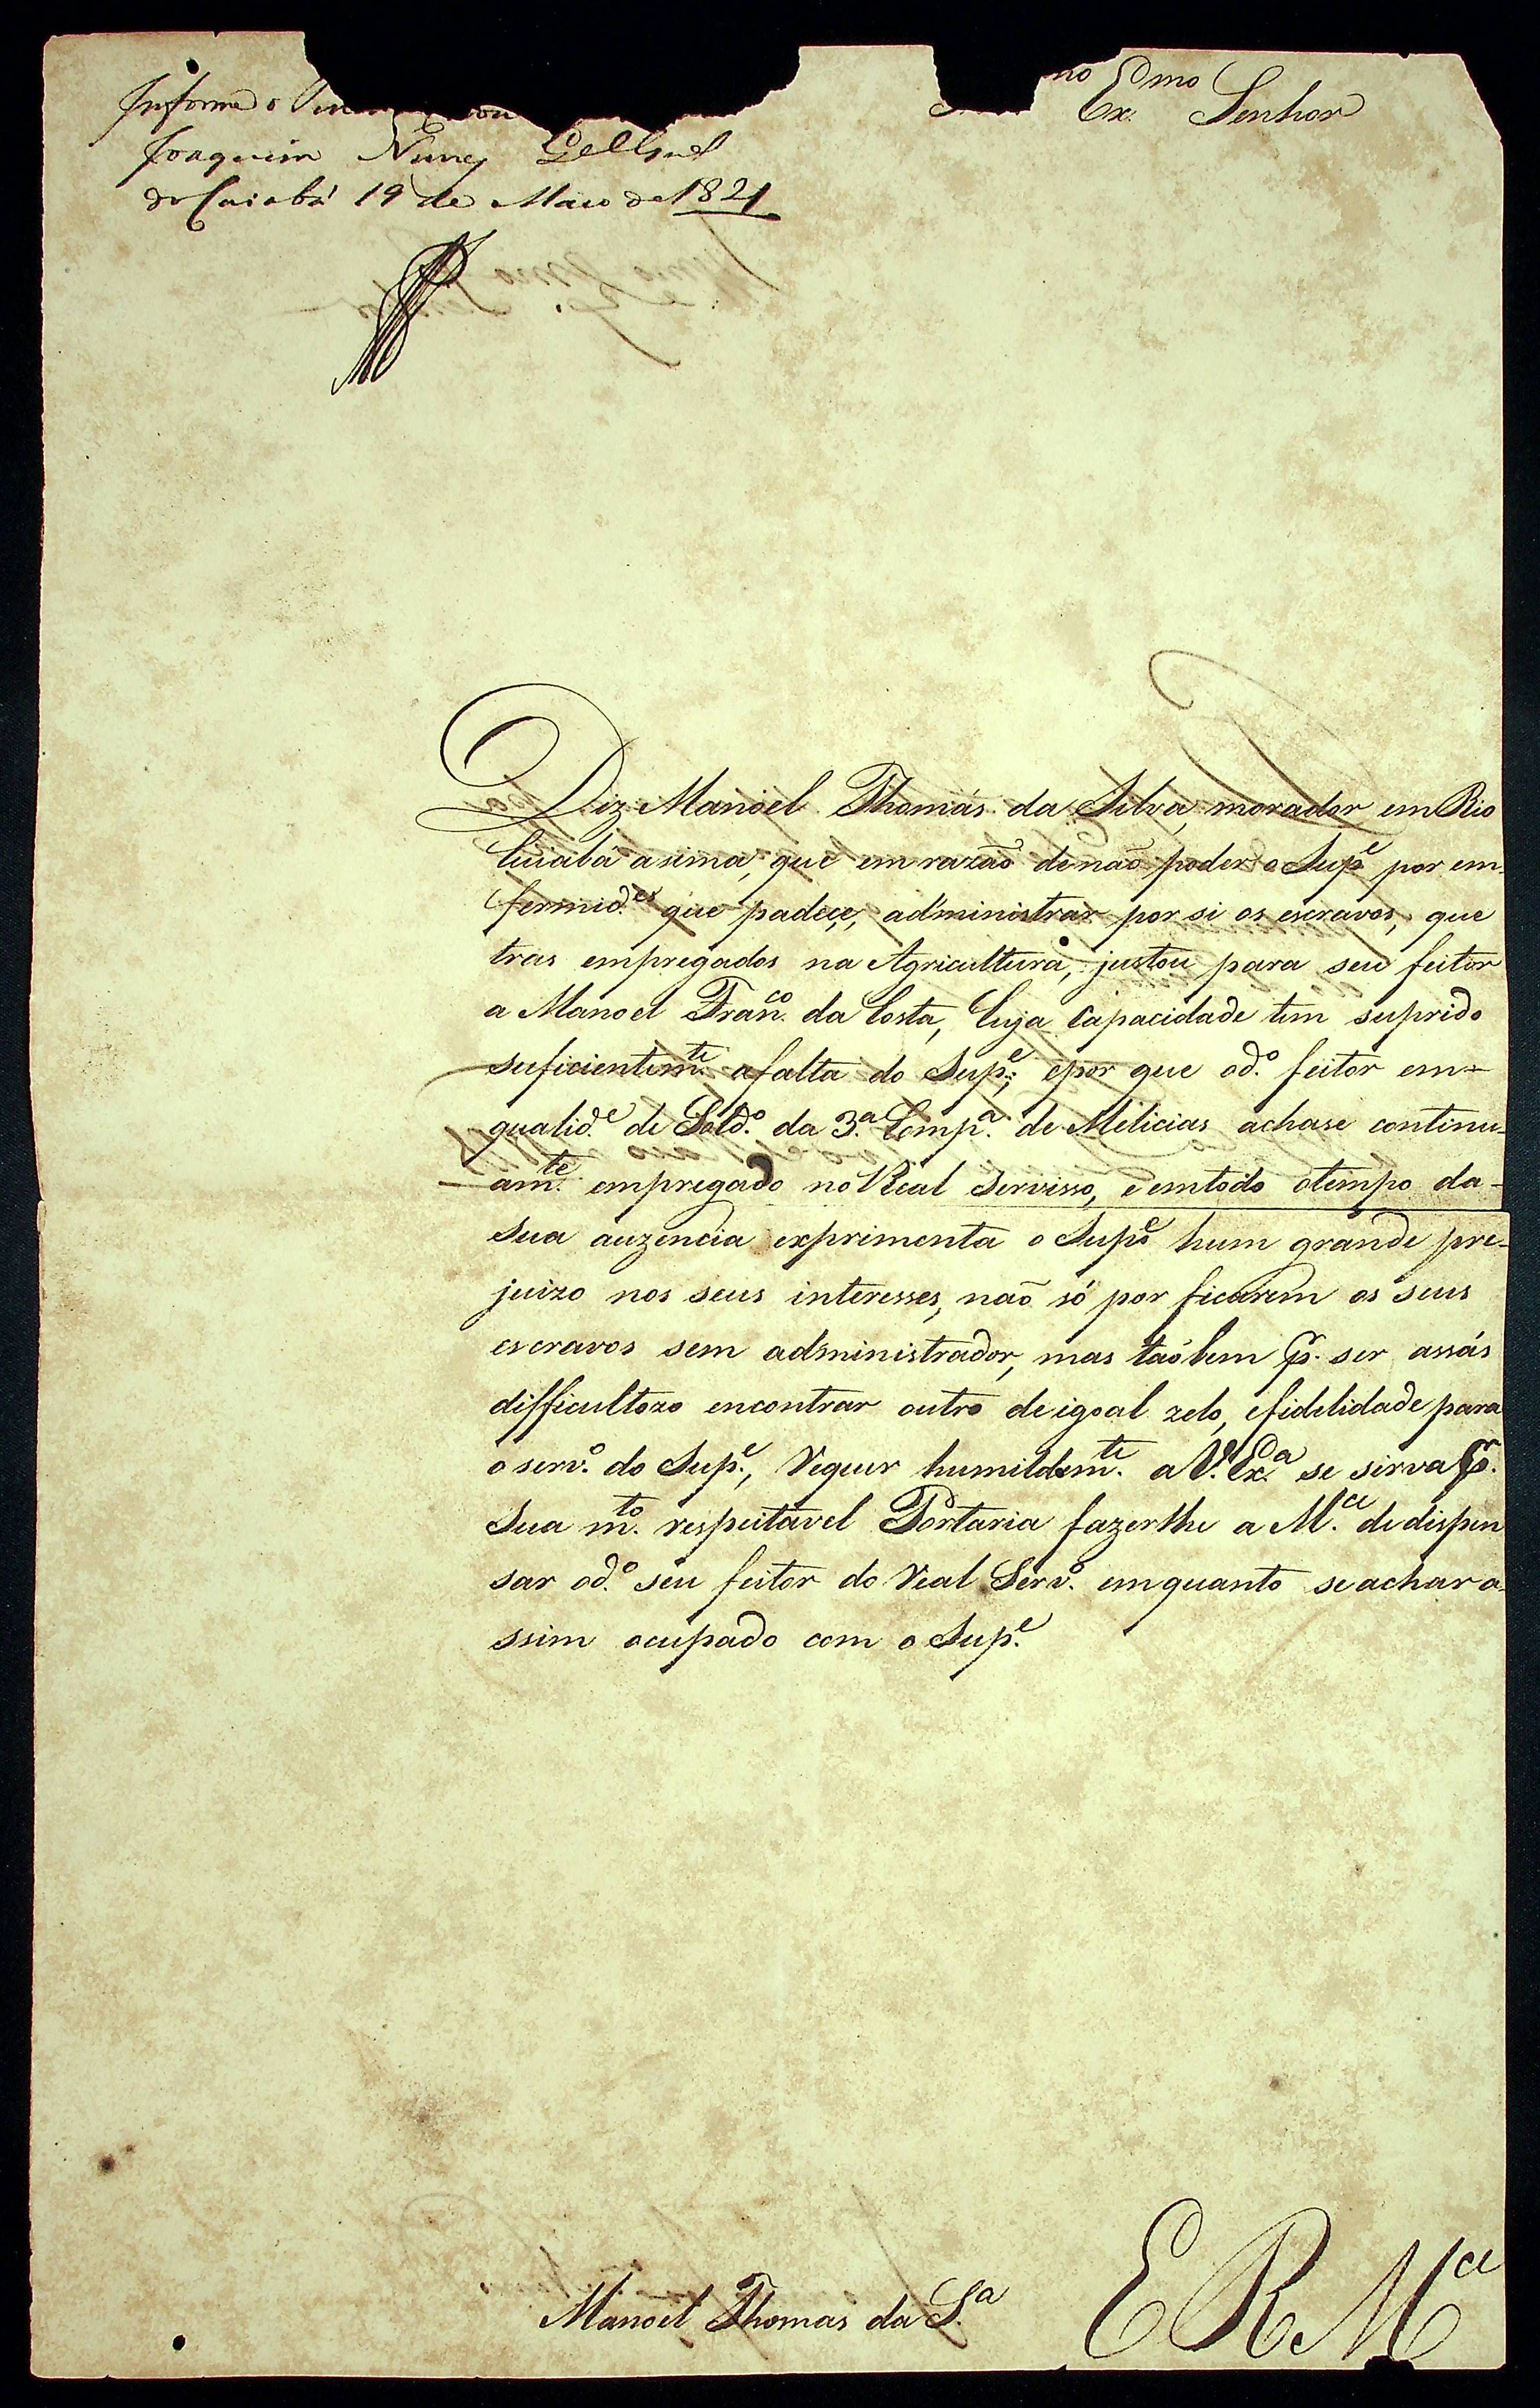 Informe o
Joaquim Nunes
do Cuiabá 19 de Maio de 1821
Ex.mo Senhor
Diz Manoel Thomás da Silva, morador em Rio
Cuiabá asima, que em razão de não poder o Sup.e por em-
fermid.es que padeçe, administrar por si os escravos, que
tras empregados na Agricultura, justou para seu feitor
a Manoel Fran.co da Costa, Cuja Capacidade tem suprido
suficientem.te a falta do Sup.e; e por que o d.o feitor em-
qualid.e de Sold.o da 3.a Comp.a de Milicias achase continu-
am.te empregado no Real Servisso, e em todo o tempo da-
sua auzencia exprimenta o Sup.e hum grande pre-
juizo nos seus interesses, não só por ficarem os seus
escravos sem administrador, mas taõbem p.r ser assás
difficultozo encontrar outro de igoal zelo, e fidelidade para
o serv.o do Sup.e, Requer humildem.te a V. Ex.a se sirva p.r
Sua m.to respeitavel Portaria fazerlhe a M.ce de dispen
sar o d.o seu feitor do Real Serv.o emquanto se achar a-
ssim ocupado com o Sup.e
Manoel Thomas da S.a
E R M.ce